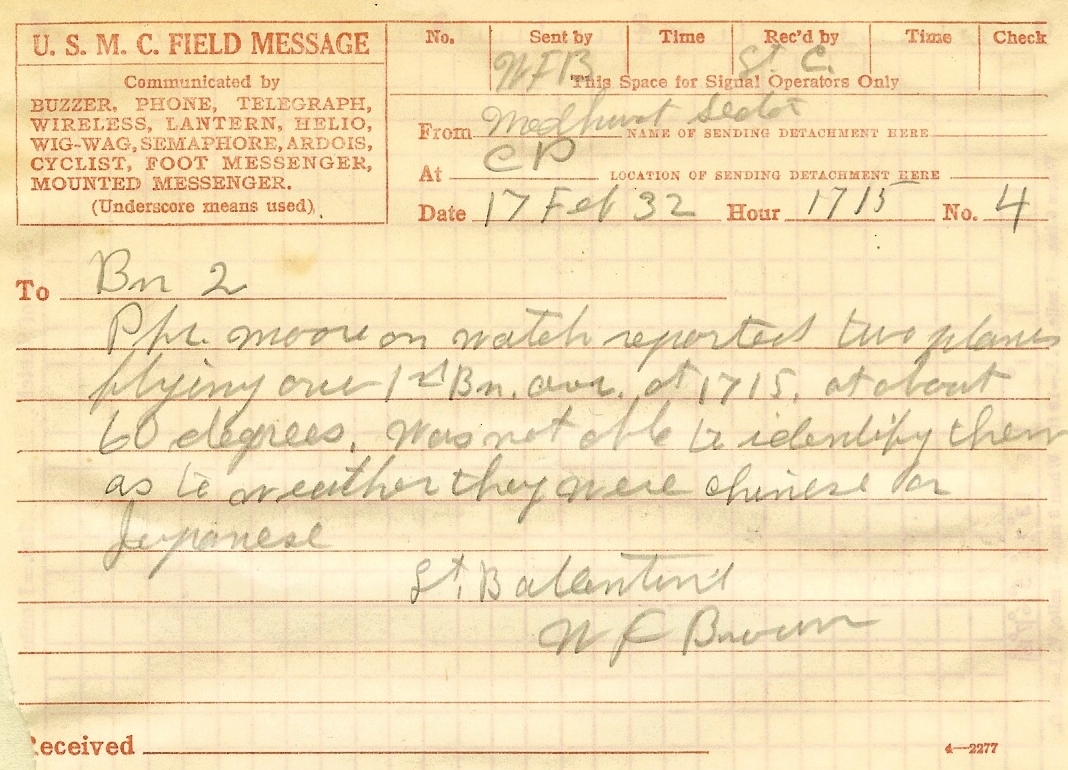 U. S. M. C. FIELD MESSAGE
Communicated by
BUZZER, PHONE, TELEGRAPH,
WIRELESS, LANTERN, HELIO,
WIG-WAG, SEMAPHORE, ARDOIS,
CYCLIST, FOOT MESSENGER,
MOUNTED MESSENGER.
(Underscore means used)
No. Sent by Time Rec'd by Time Check
WFB St. C.
This Space for Signal Operators Only
From Medhurst Sector
NAME OF SENDING DETACHMENT HERE
At CP LOCATION OF SENDING DETACHMENT HERE
Date 17 Feb 32 Hour 1715 No. 4
To Bn 2
Moore on watch reported two planes
flying over 1st Bn. at 1715. at about
60 degrees. Was not able to identify them
as to weather they were chinese or
Japanese
Lt. Ballentine
W F Brown
Received
4—2277